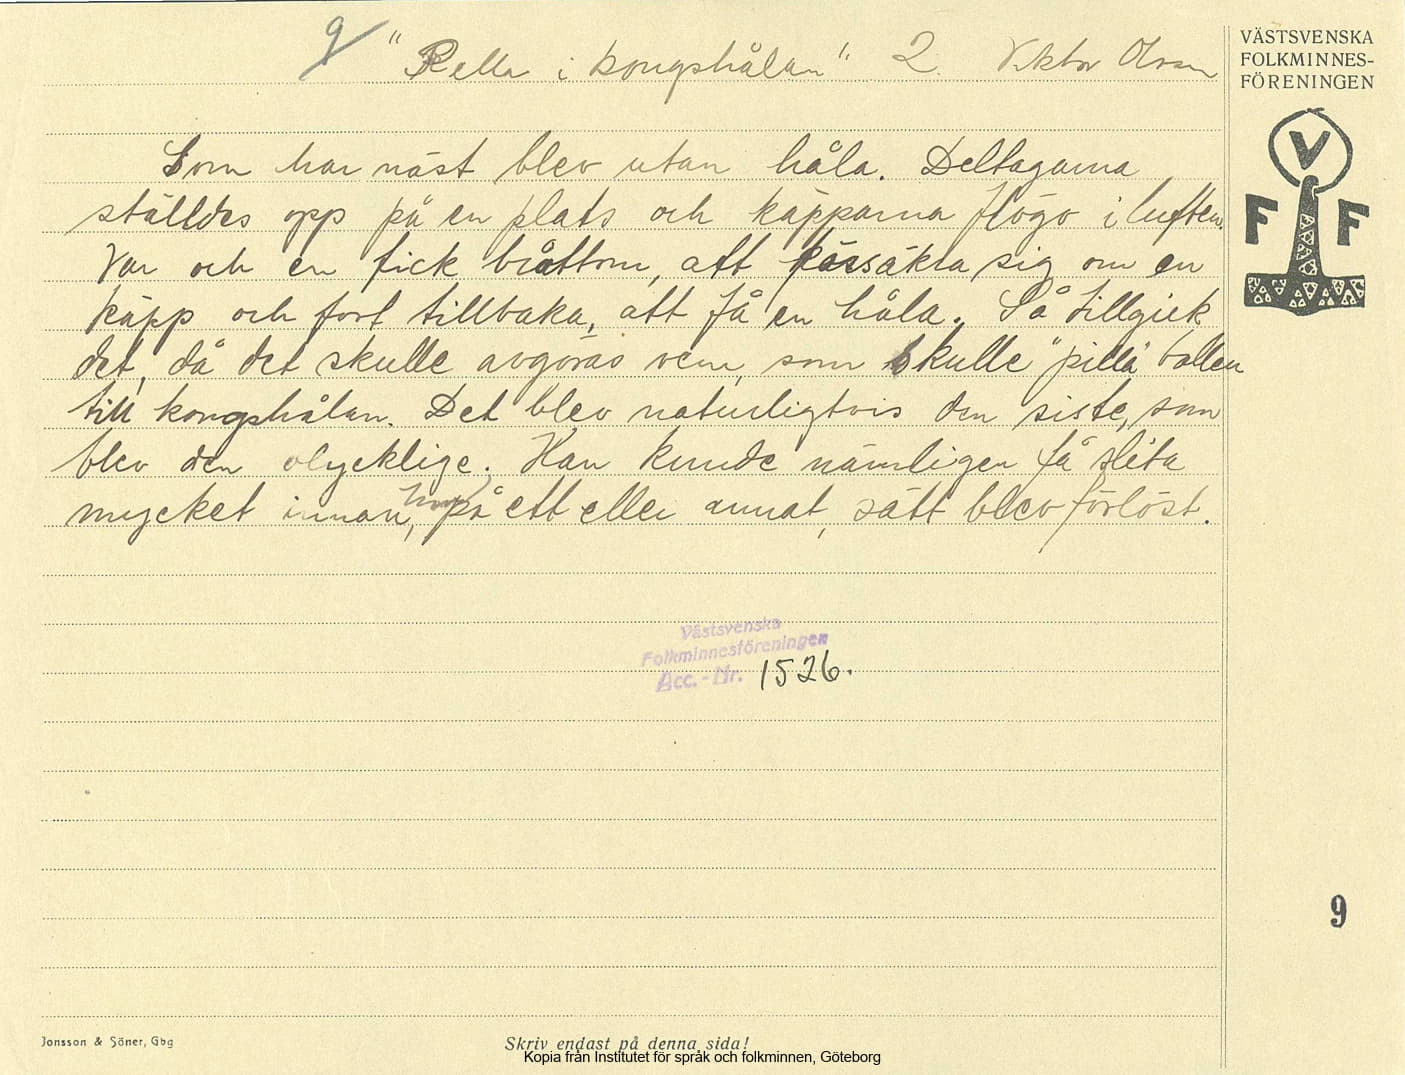 9 "Rella i kongshålan" 2. Viktor Olsson
VÄSTSVENSKA
FOLKMINNES-
FÖRENINGEN
V
F F
Som har näst blev utan håla. Deltagarna
ställdes opp på en plats och käpparna flögo i luften.
Var och en fick bråttom, att försäkra sig om en
käpp och fort tillbaka, att få en håla. Så tillgick
det, då det skulle avgöras vem, som skulle "pilla" bollen
till kongshålan. Det blev naturligtvis den siste, som
blev den olycklige. Han kunde nämligen få slita
mycket innan, han på ett eller annat, sätt blev förlöst.
Västsvenska
Folkminnesföreningen
Acc.-Nr. 1526.
9
Jonsson & Söner, Gbg
Skriv endast på denna sida!
Kopia från Institutet för språk och folkminnen, Göteborg